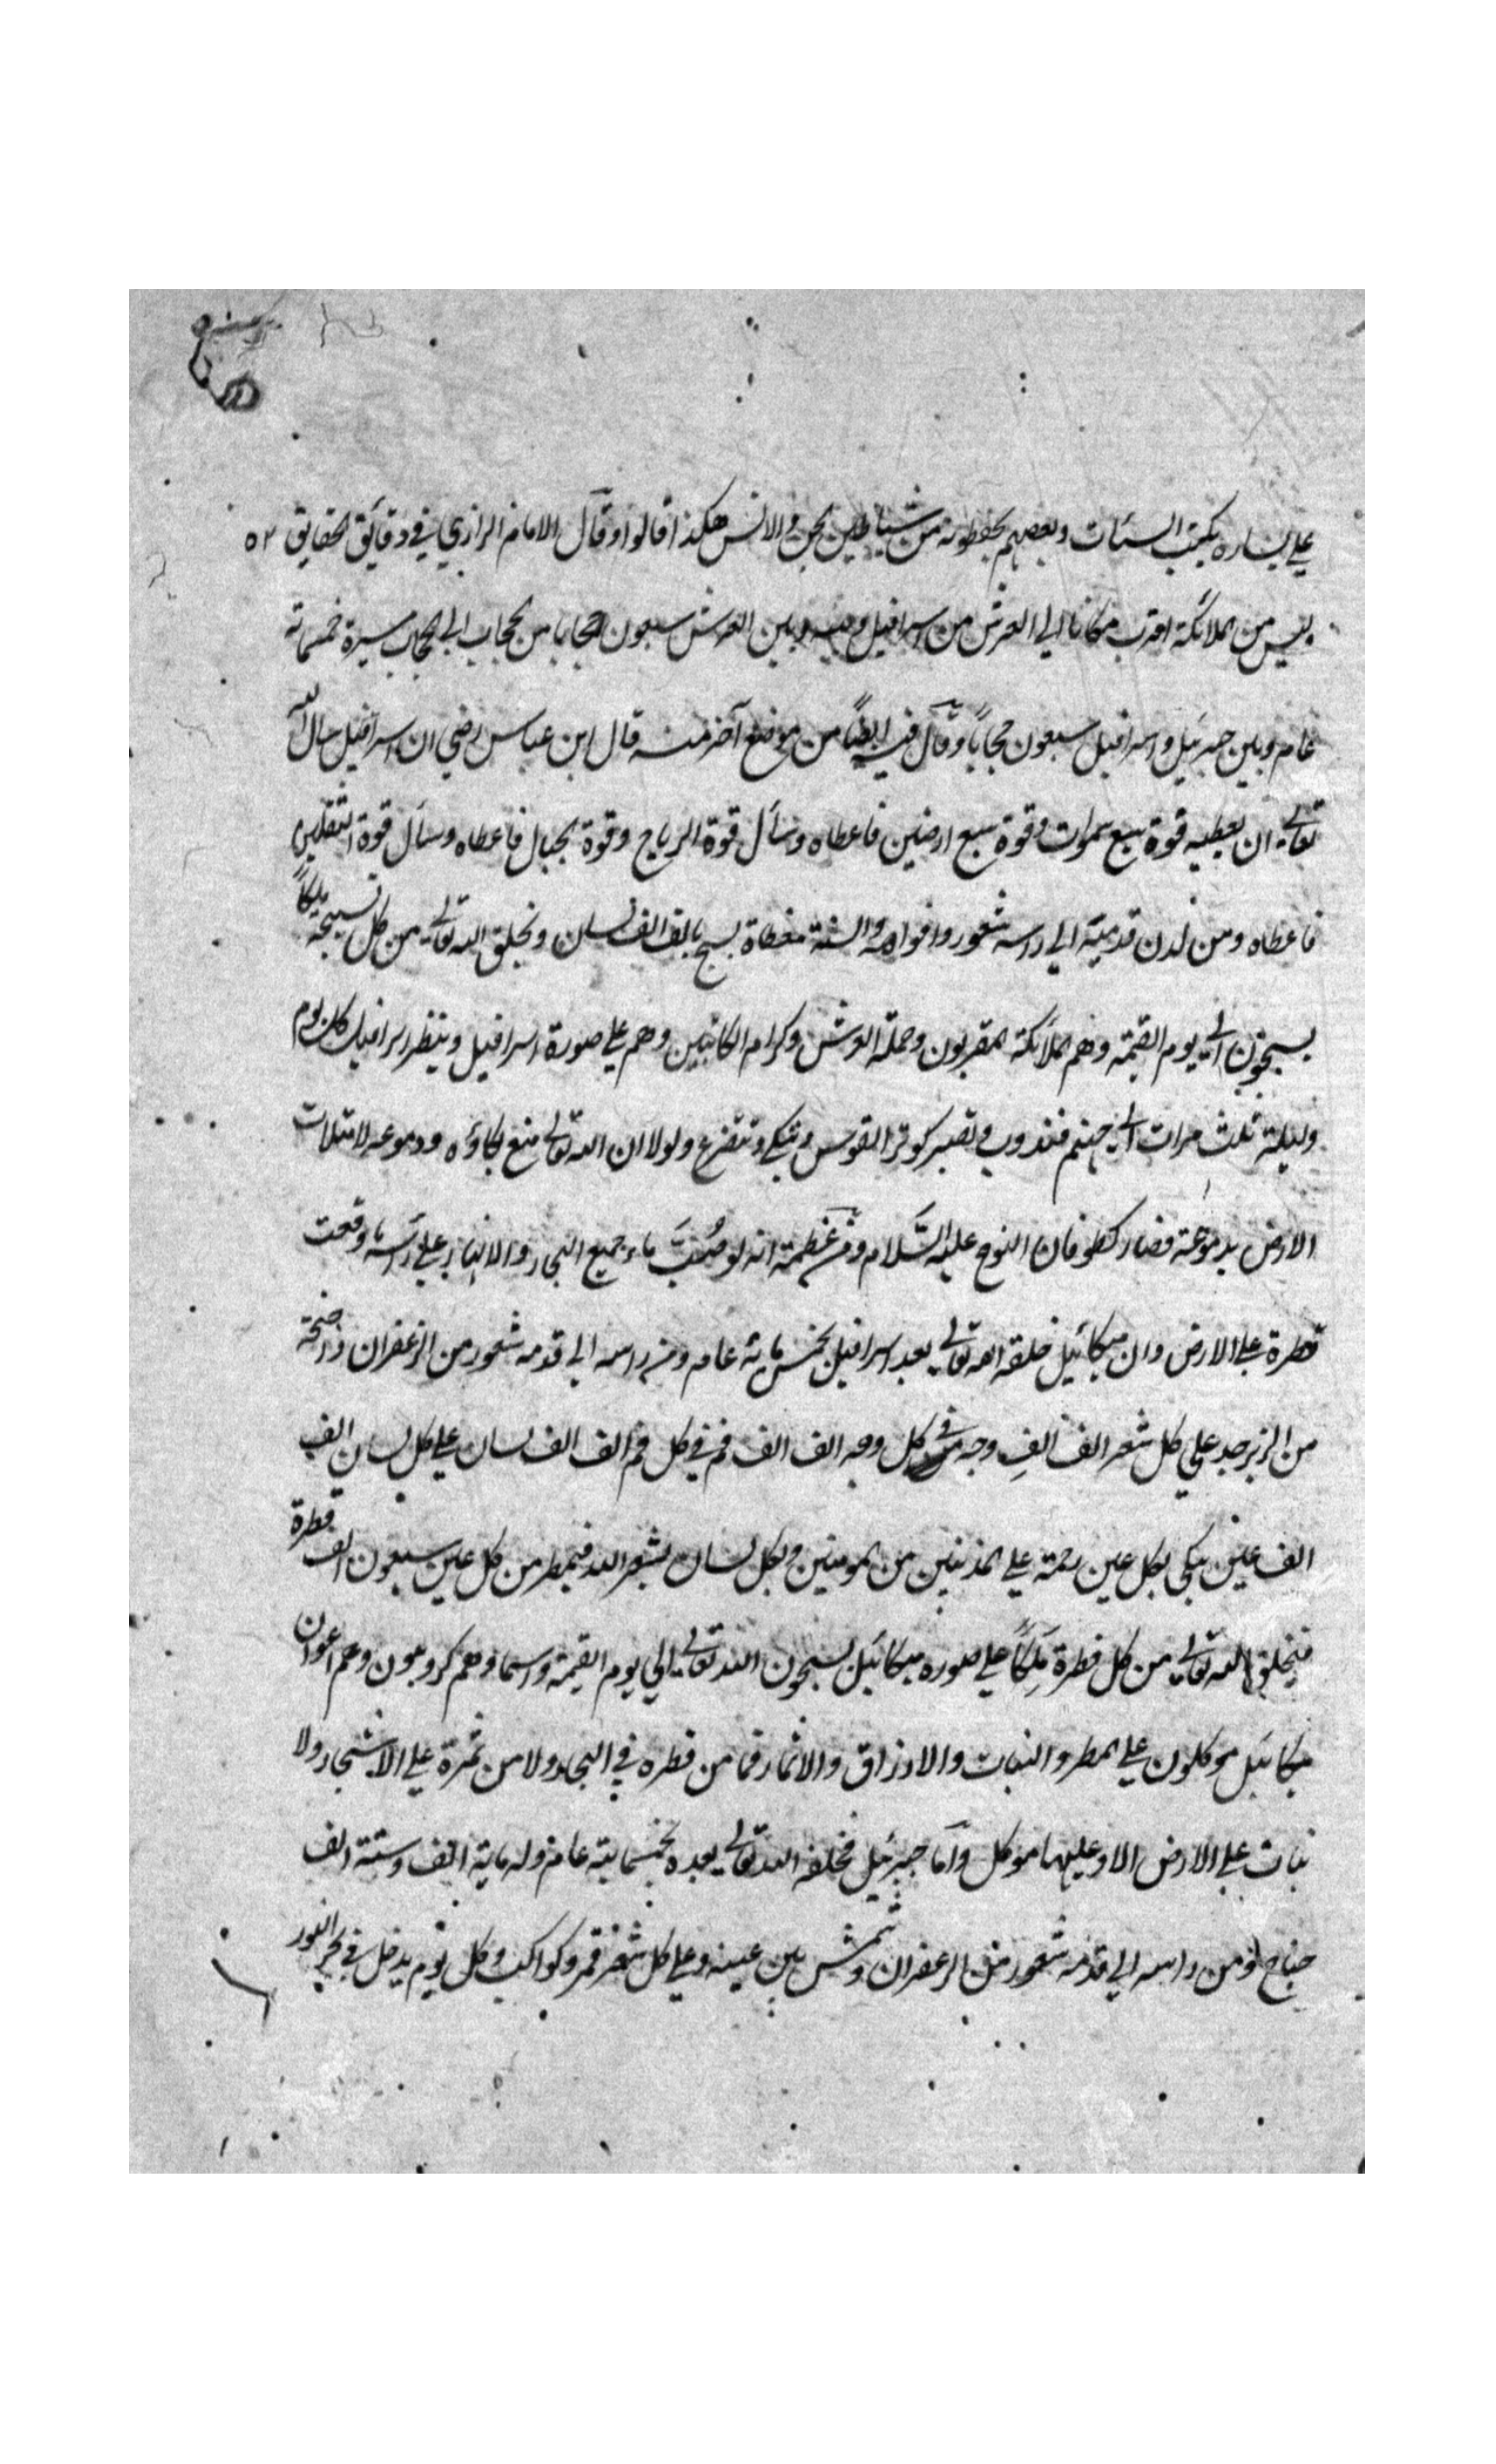 على يساره يكتب السيئات وبعضهم يحفظونه من شياطين الجن والانس هكذا قالوا وقال الامام الرازي في دقائق الحقايق ٥٢
ليس من الملائكة اقرب مكانا الي العرش من اسرافيل وبينه وبين العرش سبعون حجابا من الحجاب الي الحجاب مسيرة خمسمائة
عام وبين جبرئيل واسرافيل سبعون حجاباً وقال فيه ايضاً من موضع آخر منه قال ابن عباس رضي ان اسرافيل سال الله
تعالى ان يعطيه قوة سبع سموات وقوة سبع ارضين فاعطاه وسأل قوة الرياح وقوة الجبال فاعطاه وسأل قوة الثقلين
فاعطاه ومن لدن قدميه الي راسه شعور وافواه والسنة مغطاة يسبح بالف الف لسان ويخلق الله تعالى من كل تسبيحه ملكاً
يسبحون الى يوم القيمة وهم الملائكة المقربون وحملة العرش وكرام الكاتبين وهم علي صورة اسرافيل وينظر اسرافيل كل يوم
وليلة ثلث مرات الى جهنم فيذوب ويصير كوتر القوس ويبكي ويتضرع ولولا ان الله تعالى منع بكاؤه ودموعه لامتلات
الارض بدموعه فصار كطوفان النوح عليه السَّلام ومن عَظمته انه لو صُبَّ ماء جميع البحار والانهار علي راسه ما وقعت
قطرة علي الارض وان ميكائيل خلقه الله تعالى بعد اسرافيل بخمس مائة عام ومن راسه الي قدمه شعور من الزعفران واجنحة
من الزبرجد علي كل شعر الف الفِ وجه في كل وجه الف الف فم في كل فم الف الف لسان علي كل لسان الف
الف عين يبكي بكل عين رحمة علي المذنبين من المومنين وبكل لسان يستغفر الله فيمطر من كل عين سبعون الف قطرة
فيخلق الله تعالى من كل قطرة مَلكاً علي صورة ميكائيل يسبحون الله تعالى الي يوم القيمة واسماوهم كروبيون وهم اعوان
ميكائيل موكلون علي المطر والنبات والارزاق والاثمار فما من قطره في البحار ولا من ثمرة علي الاشجار ولا
نبات علي الارض الا وعليها موكل وأما جبرئيل فخلقه الله تعالى بعده بخمسماية عام وله ماية الف وستة الف
جناح ومن راسه الي قدمه شعور من الزعفران وشمس بين عينيه وعلي كل شعر قمر وكواكب وكل يوم يدخل في بحر النور